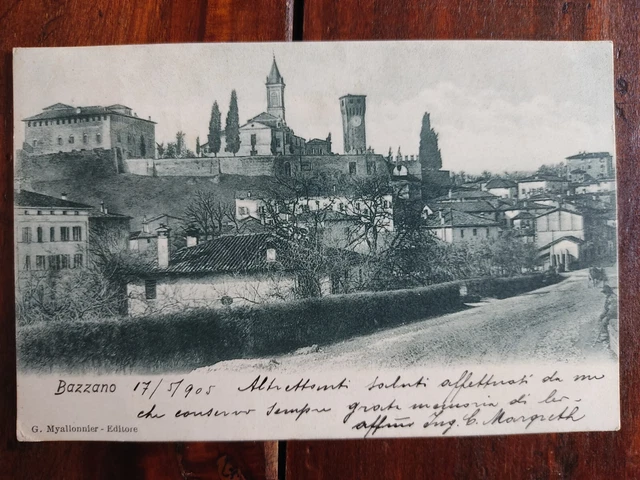 Bazzano 17/5/905 Altrettanti saluti affettuosi da me
che conservo sempre grata memoria di lei
affmo Ing. C. Margreth
G. Myallonnier - Editore